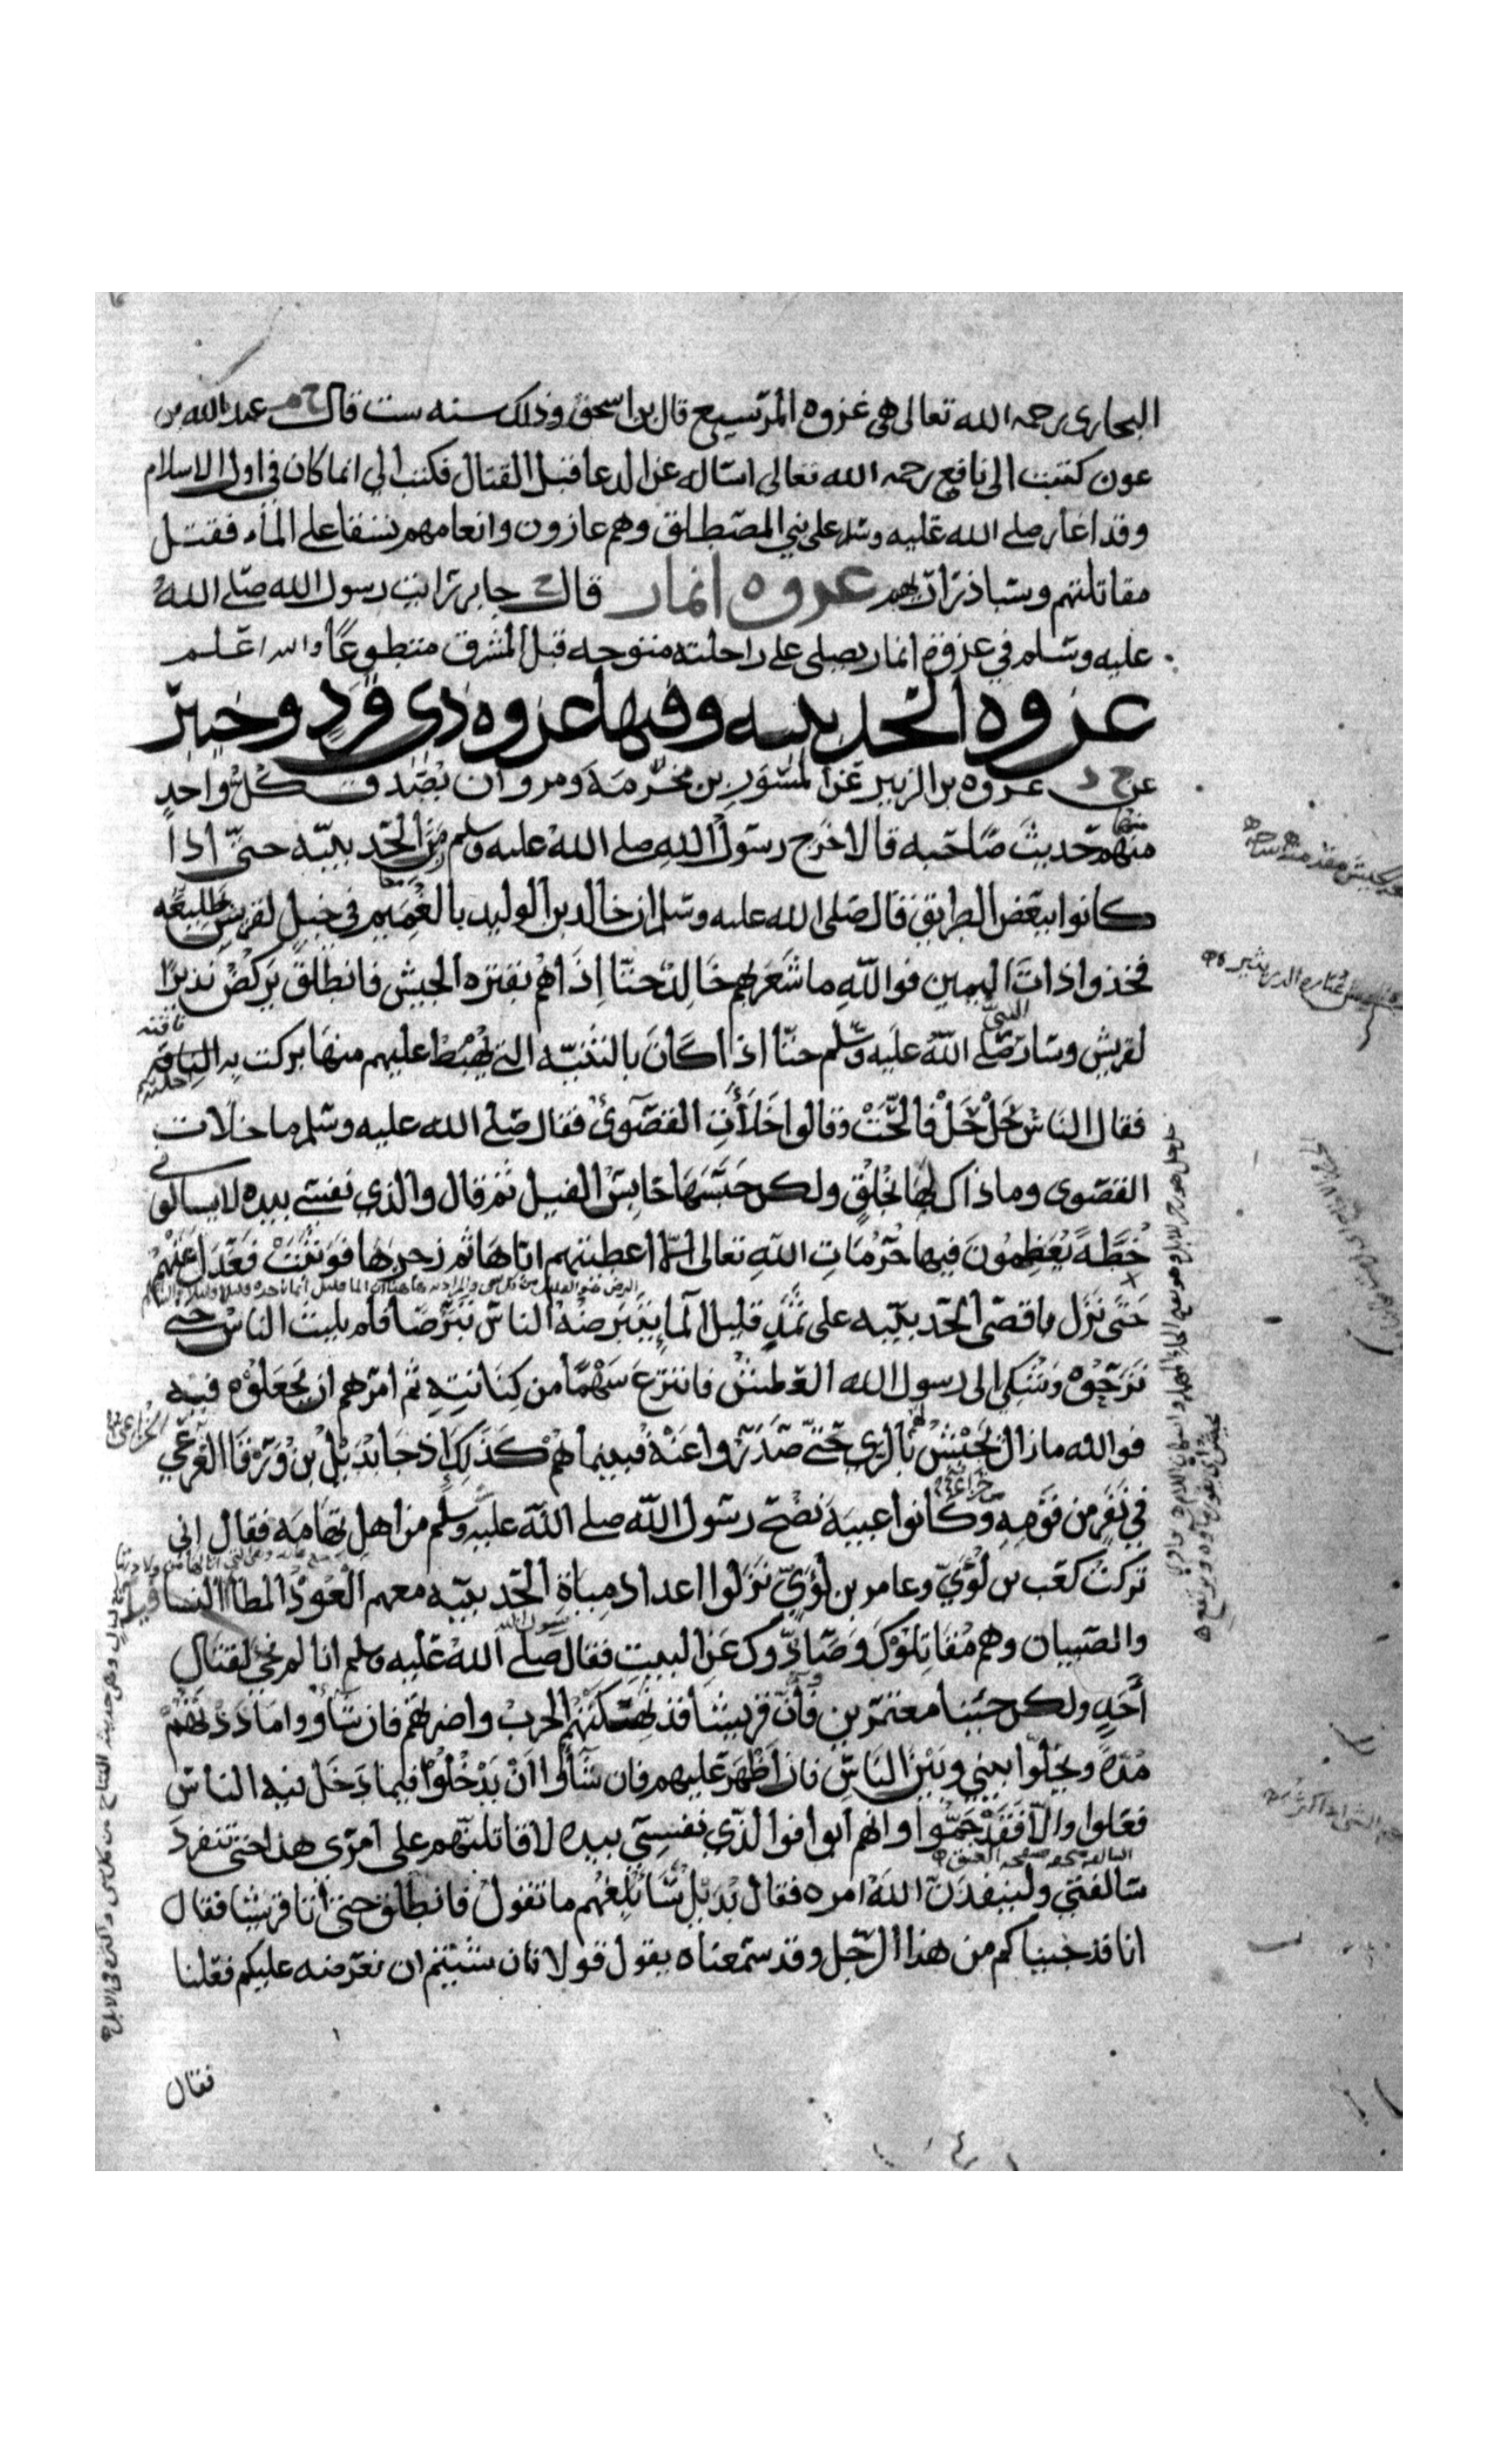 البخاري رحمه الله تعالى هي غزوه المرتسيع قال بن اسحق وذلك سنه ست قال خ م عبد الله بن
عون كتبت الى نافع رحمه الله تعالى اساله عن الدعا قبل القتال فكتب الي انما كان في اول الاسلام
وقد اغار صلى الله عليه وسلم على بني المصطلق وهم غازون وانعامهم تسقا على الماء فقتل
مقاتلتهم وسبا ذراريهم غزوه انمار قال خ جابر رايت رسول الله صلى الله
عليه وسلم في غزوة انمار يصلى على راحلته متوجه قبل المشرق متطوعا والله اعلم
غزوه الحديبيه وفيها غزوه ذي قرد وخيبر
عن خ د عروه بن الزبير عن المسور بن مخرمة ومروان يصدق كل واحد
منهم حديث صاحبه قالا خرج رسول الله صلى الله عليه وسلم زمن الحديبيه حتى اذا
كانوا ببعض الطريق قال صلى الله عليه وسلم ان خالد بن الوليد بالغميم في خيل لقريش طليعه
فخذوا ذات اليمين فوالله ما شعر بهم خالد حتا اذا هم بقترة الجيش فانطلق يركض نذيرا
لقريش وسار النبي صلى الله عليه وسلم حتا اذا كان بالثنيه التي يهبط عليهم منها بركت به الناقه
فقال الناس حل حل فالحت وقالوا خلأت القصوى فقال صلى الله عليه وسلم ما خلات
القصوى وما ذاك لها بخلق ولكن حبسها حابس الفيل ثم قال والذي نفسي بيده لا يسالوني
خطة يعظمون فيها حرمات الله تعالى الا اعطيتهم اياها ثم زجرها فوثبت فعدل عنهم
حتى نزل باقصى الحديبيه على ثمد قليل الما يتبرضه الناس تبرضا فلم يلبث الناس حتى
نزحوه وشكي الى رسول الله العطش فانتزع سهما من كنانته ثم امرهم ان يجعلوه فيه
فوالله مازال يجيش لهم بالري حتى صدروا عنه فبينما هم كذلك اذ جا بديل بن ورقا
في نفر من قومه وكانوا عيبة نصح رسول الله صلى الله عليه وسلم من اهل تهامه فقال اني
تركت كعب بن لؤي وعامر بن لؤي نزلوا اعداد مياة الحديبيه معهم العوذ المطا النسا
والصبيان وهم مقاتلوك وصادوك عن البيت فقال رسول الله صلى الله عليه وسلم انا لم نجئ لقتال
أحد ولكن جئنا معتمرين وأن قريشا قد نهكتهم الحرب واضرتهم فان شاوا ماددتهم
مدة ويخلوا بيني وبين الناس فان أظهر عليهم فان شاؤا ان يدخلوا فيما دخل فيه الناس
فعلوا والا فقد جموا وان هم ابوا فوالذي نفسي بيده لاقاتلنهم على امرى هذا حتى تنفرد
سالفتي ولينفذن الله امره فقال بديل سأبلغهم ما تقول فانطلق حتى أتا قريشا فقال
انا قد جيناكم من هذا الرجل وقد سمعناه يقول قولا فان شيتم ان نعرضه عليكم فعلنا
فقال